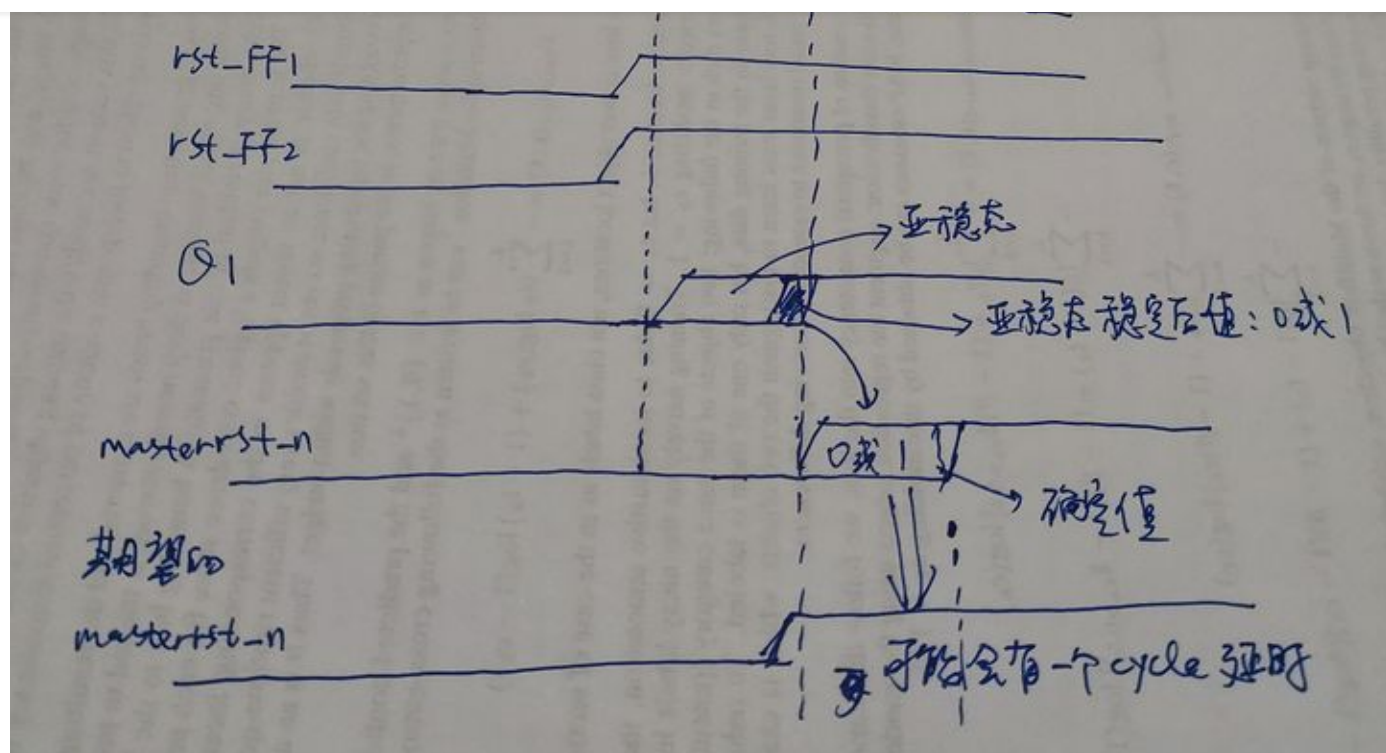 rst_FF1
rst_FF2
Q1
亚稳态
亚稳态稳定后值：0或1
masterrst_n
0或1
确定值
期望的
masterrst_n
可能会有一个cycle延时